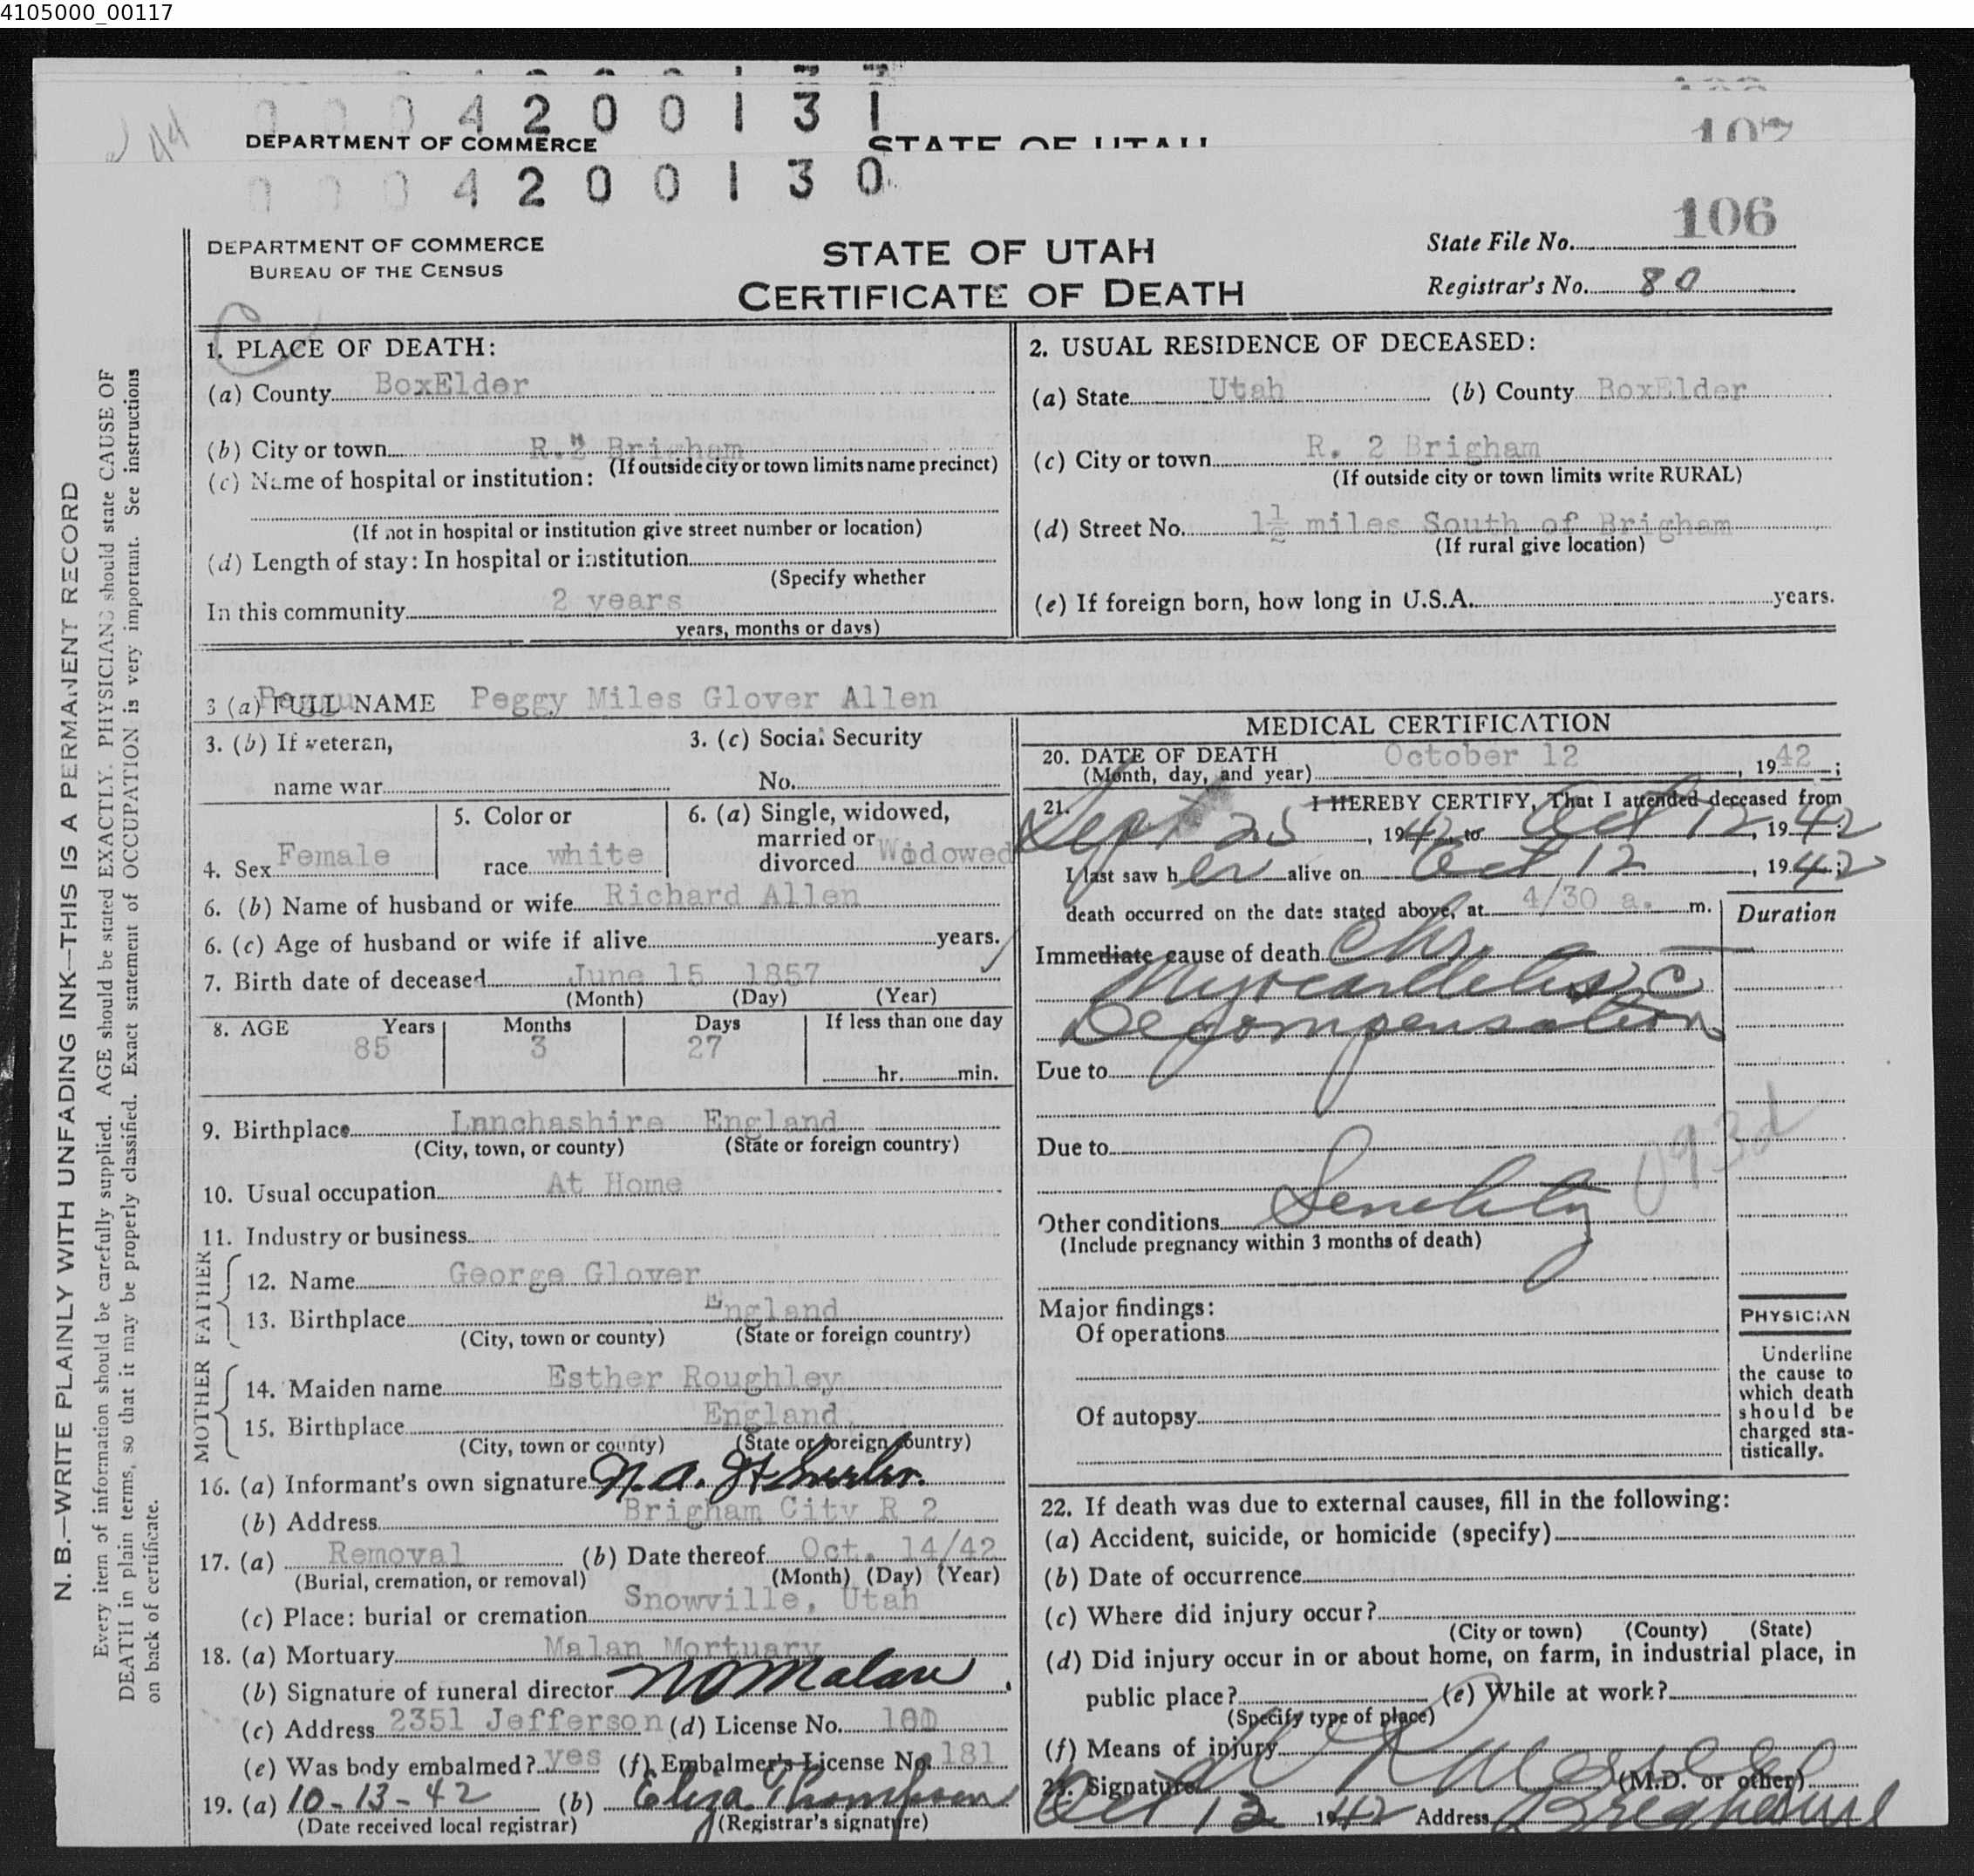 4105000_00117
4 2 0 0 1 3 1
DEPARTMENT OF COMMERCE STATE OF UTAH
107
0 0 0 4 2 0 0 1 3 0
106
DEPARTMENT OF COMMERCE
BUREAU OF THE CENSUS
STATE OF UTAH
CERTIFICATE OF DEATH
State File No.
Registrar's No. 80
N. B.—WRITE PLAINLY WITH UNFADING INK—THIS IS A PERMANENT RECORD
Every item of information should be carefully supplied. AGE should be stated EXACTLY. PHYSICIANS should state CAUSE OF
DEATH in plain terms, so that it may be properly classified. Exact statement of OCCUPATION is very important. See instructions
on back of certificate.
1. PLACE OF DEATH:
(a) County BoxElder
(b) City or town R.2 Brigham
(If outside city or town limits name precinct)
(c) Name of hospital or institution:
(If not in hospital or institution give street number or location)
(d) Length of stay: In hospital or institution
(Specify whether
In this community 2 years
years, months or days)
2. USUAL RESIDENCE OF DECEASED:
(a) State Utah (b) County BoxElder
(c) City or town R. 2 Brigham
(If outside city or town limits write RURAL)
(d) Street No. 1½ miles South of Brigham
(If rural give location)
(e) If foreign born, how long in U.S.A. years.
3 (a) FULL NAME Peggy Miles Glover Allen
3. (b) If veteran,
name war
3. (c) Social Security
No.
4. Sex Female
5. Color or
race white
6. (a) Single, widowed,
married or
divorced Widowed
6. (b) Name of husband or wife Richard Allen
6. (c) Age of husband or wife if alive years.
7. Birth date of deceased June 15 1857
(Month) (Day) (Year)
8. AGE Years Months Days If less than one day
85 3 27
hr. min.
9. Birthplace Lnnchashire England
(City, town, or county) (State or foreign country)
10. Usual occupation At Home
11. Industry or business
FATHER
12. Name George Glover
13. Birthplace England
(City, town or county) (State or foreign country)
MOTHER
14. Maiden name Esther Roughley
15. Birthplace England
(City, town or county) (State or foreign country)
16. (a) Informant's own signature
(b) Address Brigham City R 2
17. (a) Removal (b) Date thereof Oct. 14/42
(Burial, cremation, or removal) (Month) (Day) (Year)
(c) Place: burial or cremation Snowville, Utah
18. (a) Mortuary Malan Mortuary
(b) Signature of funeral director Malan
(c) Address 2351 Jefferson (d) License No.
(e) Was body embalmed? yes (f) Embalmer's License No. 181
19. (a) 10-13-42 (b) Eliza Thompson
(Date received local registrar) (Registrar's signature)
MEDICAL CERTIFICATION
20. DATE OF DEATH
(Month, day, and year) October 12, 1942;
21. I HEREBY CERTIFY, That I attended deceased from
Sept 25, 1942, to Oct 12, 1942;
I last saw her alive on Oct 12, 1942;
death occurred on the date stated above, at 4/30 a. m.
Duration
Immediate cause of death Chr.
Myocarditis c
Decompensation
Due to
Due to
93d
Other conditions Senility
(Include pregnancy within 3 months of death)
Major findings:
Of operations
Of autopsy
PHYSICIAN
Underline
the cause to
which death
should be
charged sta-
tistically.
22. If death was due to external causes, fill in the following:
(a) Accident, suicide, or homicide (specify)
(b) Date of occurrence
(c) Where did injury occur?
(City or town) (County) (State)
(d) Did injury occur in or about home, on farm, in industrial place, in
public place? (e) While at work?
(Specify type of place)
(f) Means of injury
23. Signature (M.D. or other)
Oct 13 1942 Address Brigham